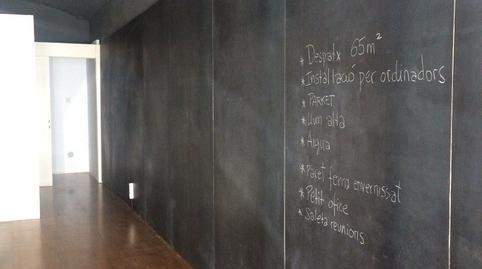 * Despatx 65m²
* Instal·lació per ordinadors
* PARKET
* Llum alta
* Aigua
* Paret ferro envernissat
* Petit ofice
* Saleta reunions